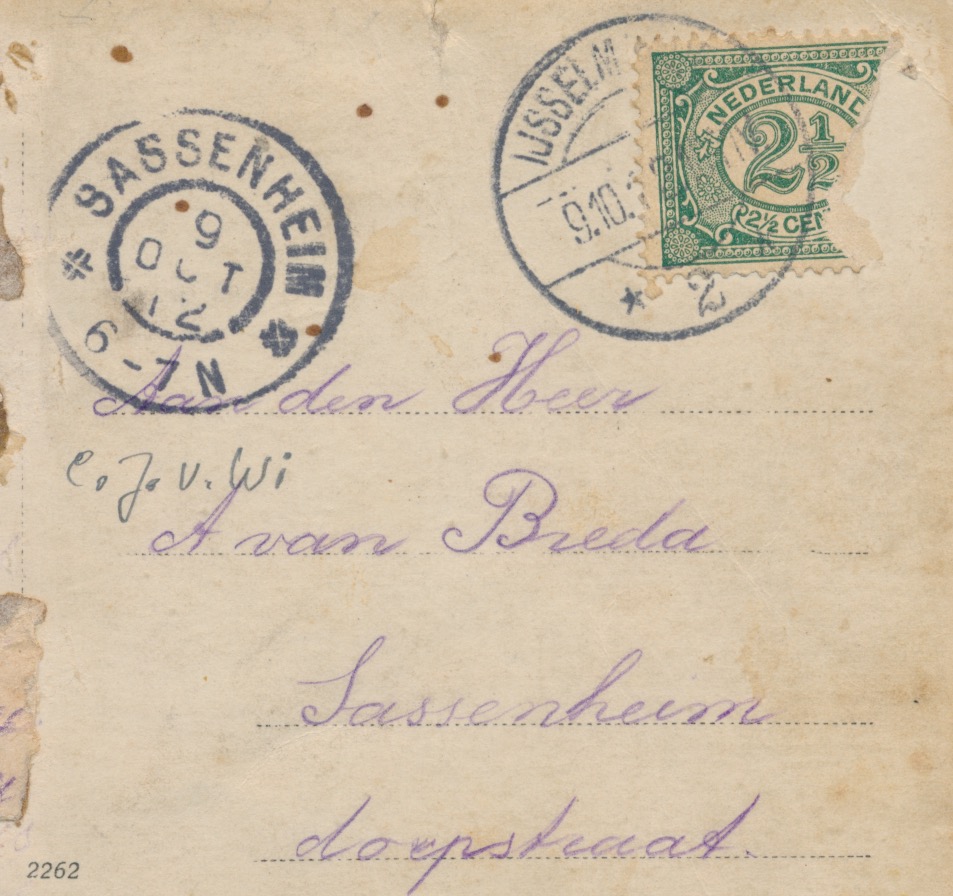 SASSENHEIM
9
OCT
12
6-7N
IJSSELM
9.10.
2
NEDERLAND
2 1/2
2 1/2 CEN
Aan den Heer
C. J. v. Wi
A van Breda
Sassenheim
dorpstraat.
2262